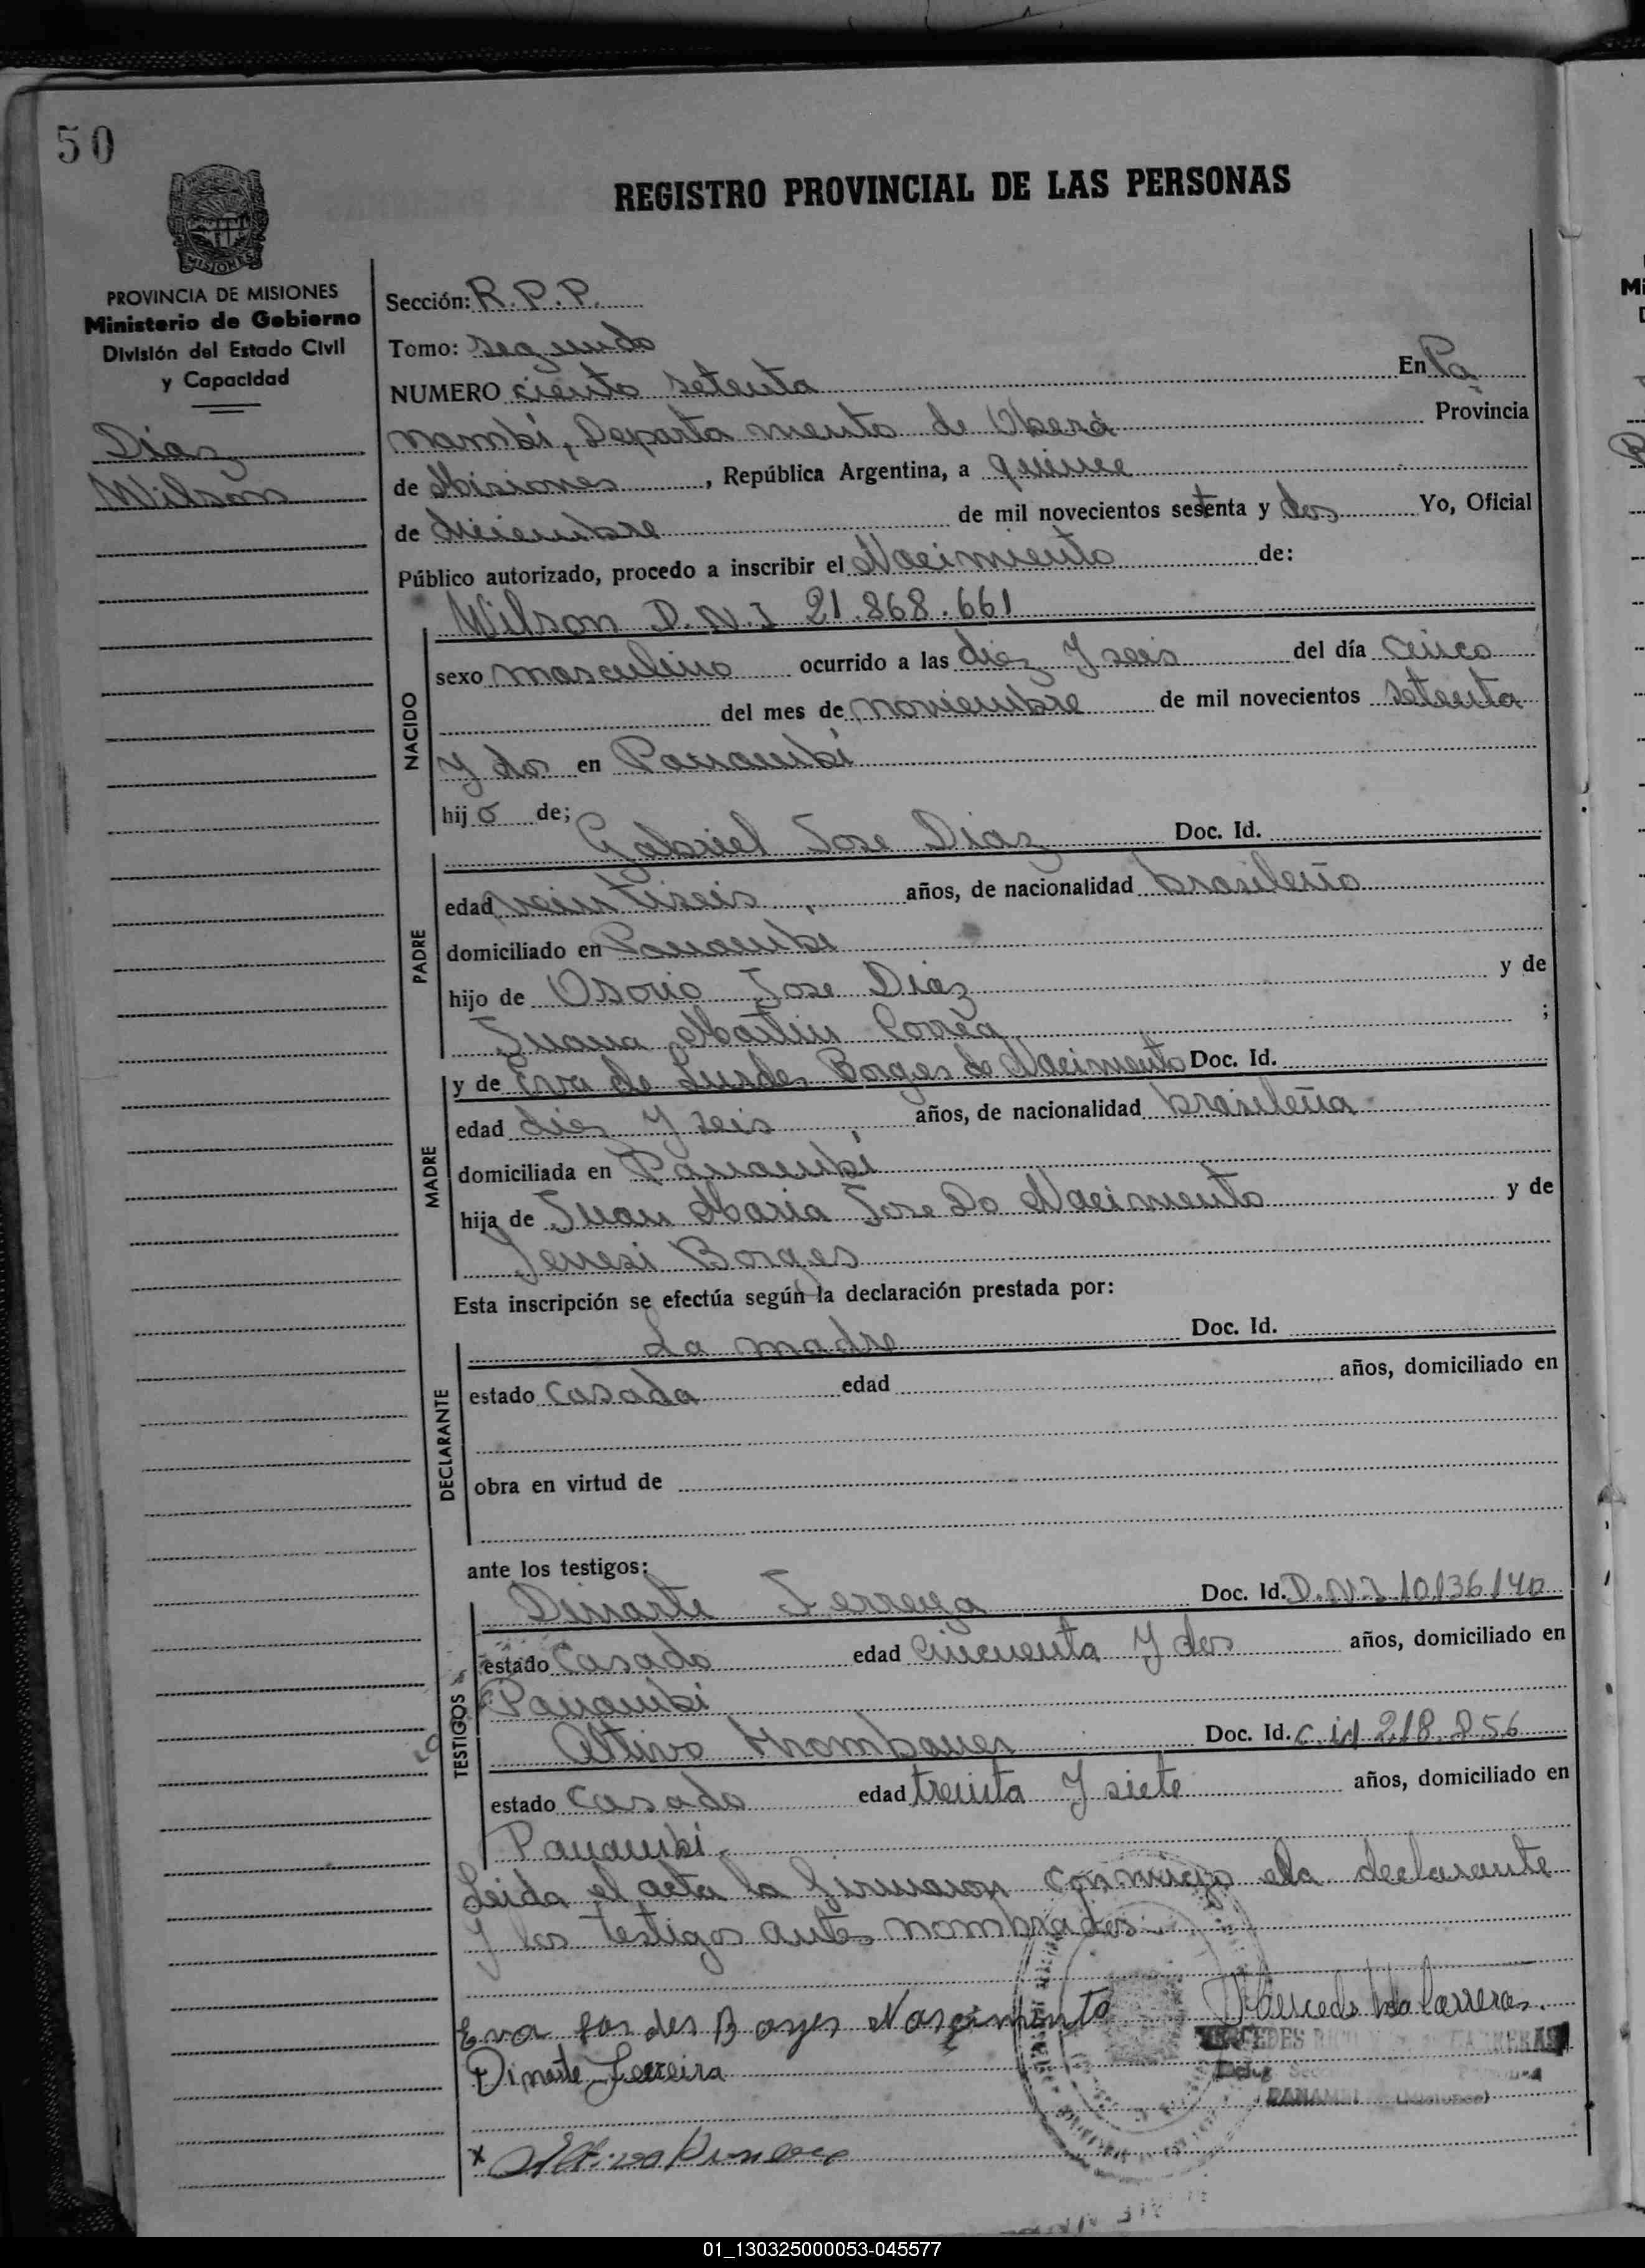 50
REGISTRO PROVINCIAL DE LAS PERSONAS
MISIONES
PROVINCIA DE MISIONES
Ministerio de Gobierno
División del Estado Civil
y Capacidad
Diaz
Wilson
Sección: R.P.P.
Tomo: segundo
NUMERO ciento setenta En Pa
nambí, Departamento de Oberá Provincia
de Misiones, República Argentina, a quince
de diciembre de mil novecientos setenta y dos Yo, Oficial
Público autorizado, procedo a inscribir el Nacimiento de:
Wilson D.N.I 21.868.661
NACIDO
sexo masculino ocurrido a las diez y seis del día cinco
del mes de noviembre de mil novecientos setenta
y dos en Panambí
hijo de;
Gabriel Jose Diaz Doc. Id.
PADRE
edad veintiseis años, de nacionalidad brasileño
domiciliado en Panambi
hijo de Osorio Jose Diaz y de
Juana Martin Corrêa ;
MADRE
y de Eva de Lurdes Borges do Nacimento Doc. Id.
edad diez y seis años, de nacionalidad brasileña
domiciliada en Panambí
hija de Juan Maria Jose Do Nacimento y de
Jenesi Borges
Esta inscripción se efectúa según la declaración prestada por:
DECLARANTE
La madre Doc. Id.
estado casada edad años, domiciliado en
obra en virtud de
ante los testigos:
TESTIGOS
Dinarte Ferreyra Doc. Id. D.N.I 10.136.140
estado casado edad cincuenta y dos años, domiciliado en
Panambi
Altivo Doc. Id. c.id 218.856
estado casado edad treinta y siete años, domiciliado en
Panambí
Leida el acta la firmaron conmigo la declarante
y los testigos antes nombrados.
Eva Nascimento
Dinarte Ferreira
x
MERCEDES CARRERAS
PANAMBI (Misiones)
01_130325000053-045577